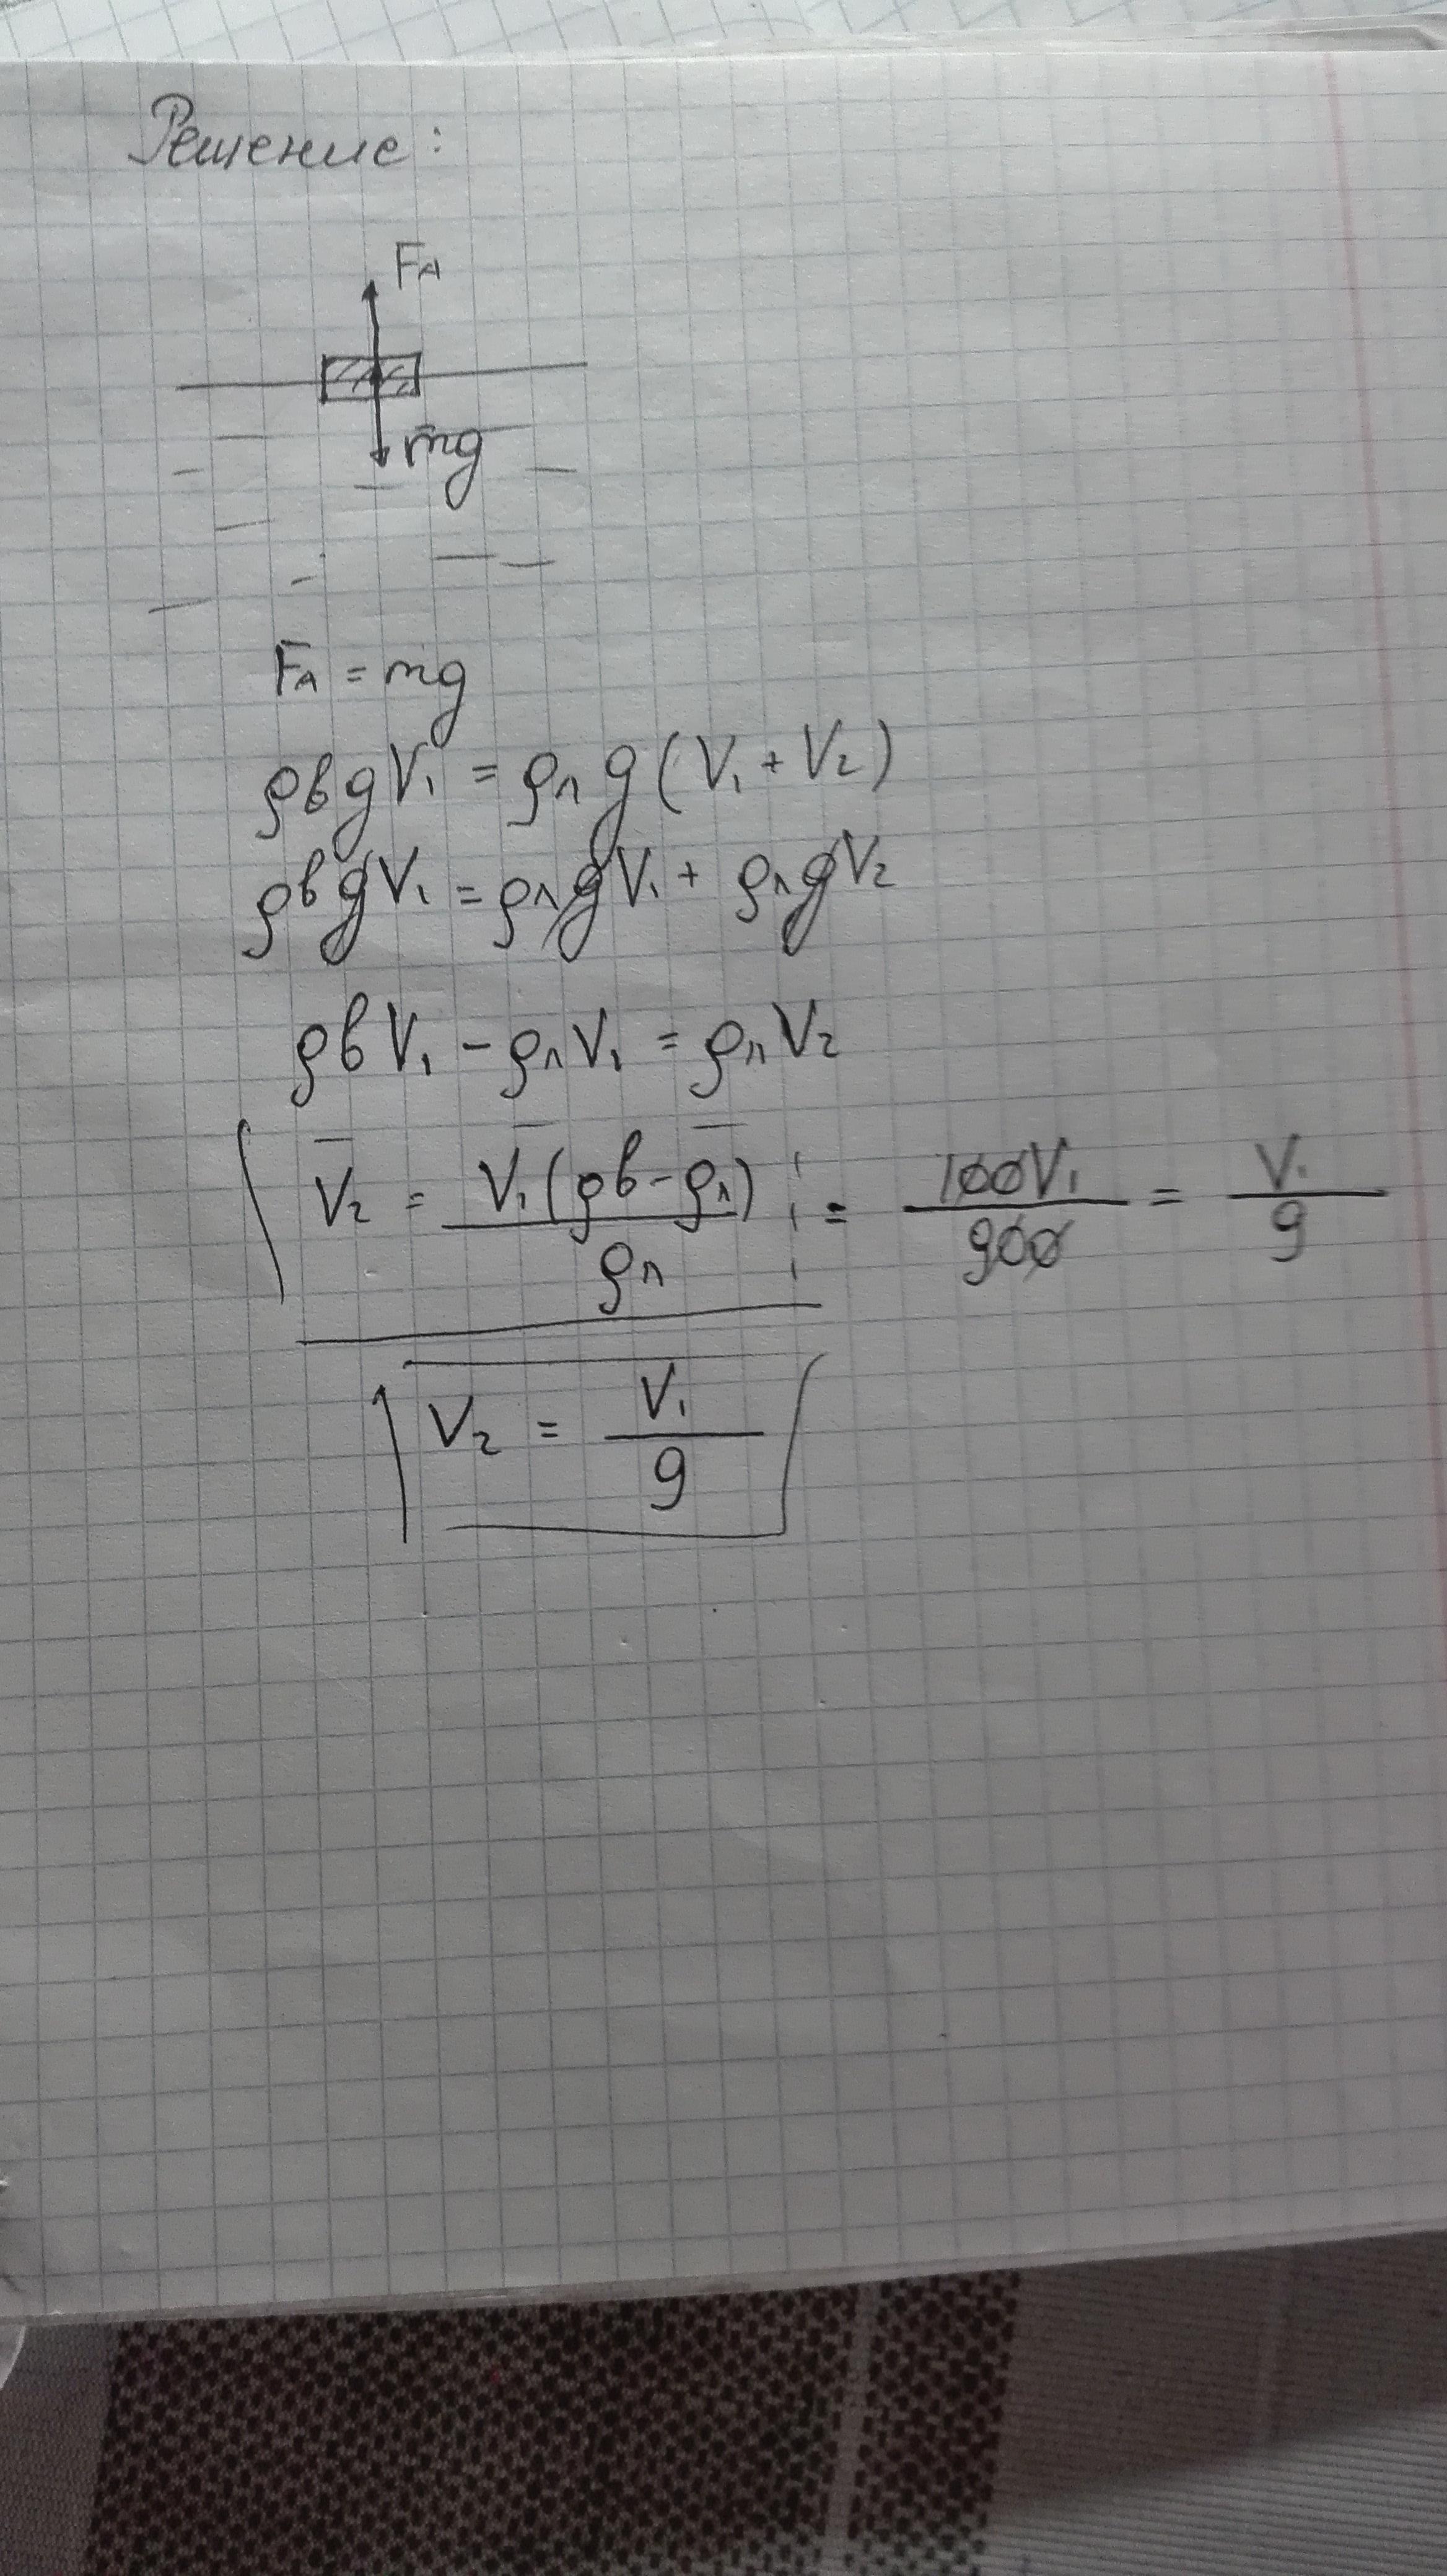 Решение:
FA
mg
FA = mg
ρв g V₁ = ρл g (V₁ + V₂)
ρв g V₁ = ρл g V₁ + ρл g V₂
ρв V₁ - ρл V₁ = ρл V₂
V₂ = V₁(ρв - ρл) / ρл = 100V₁ / 900 = V₁ / 9
V₂ = V₁ / 9